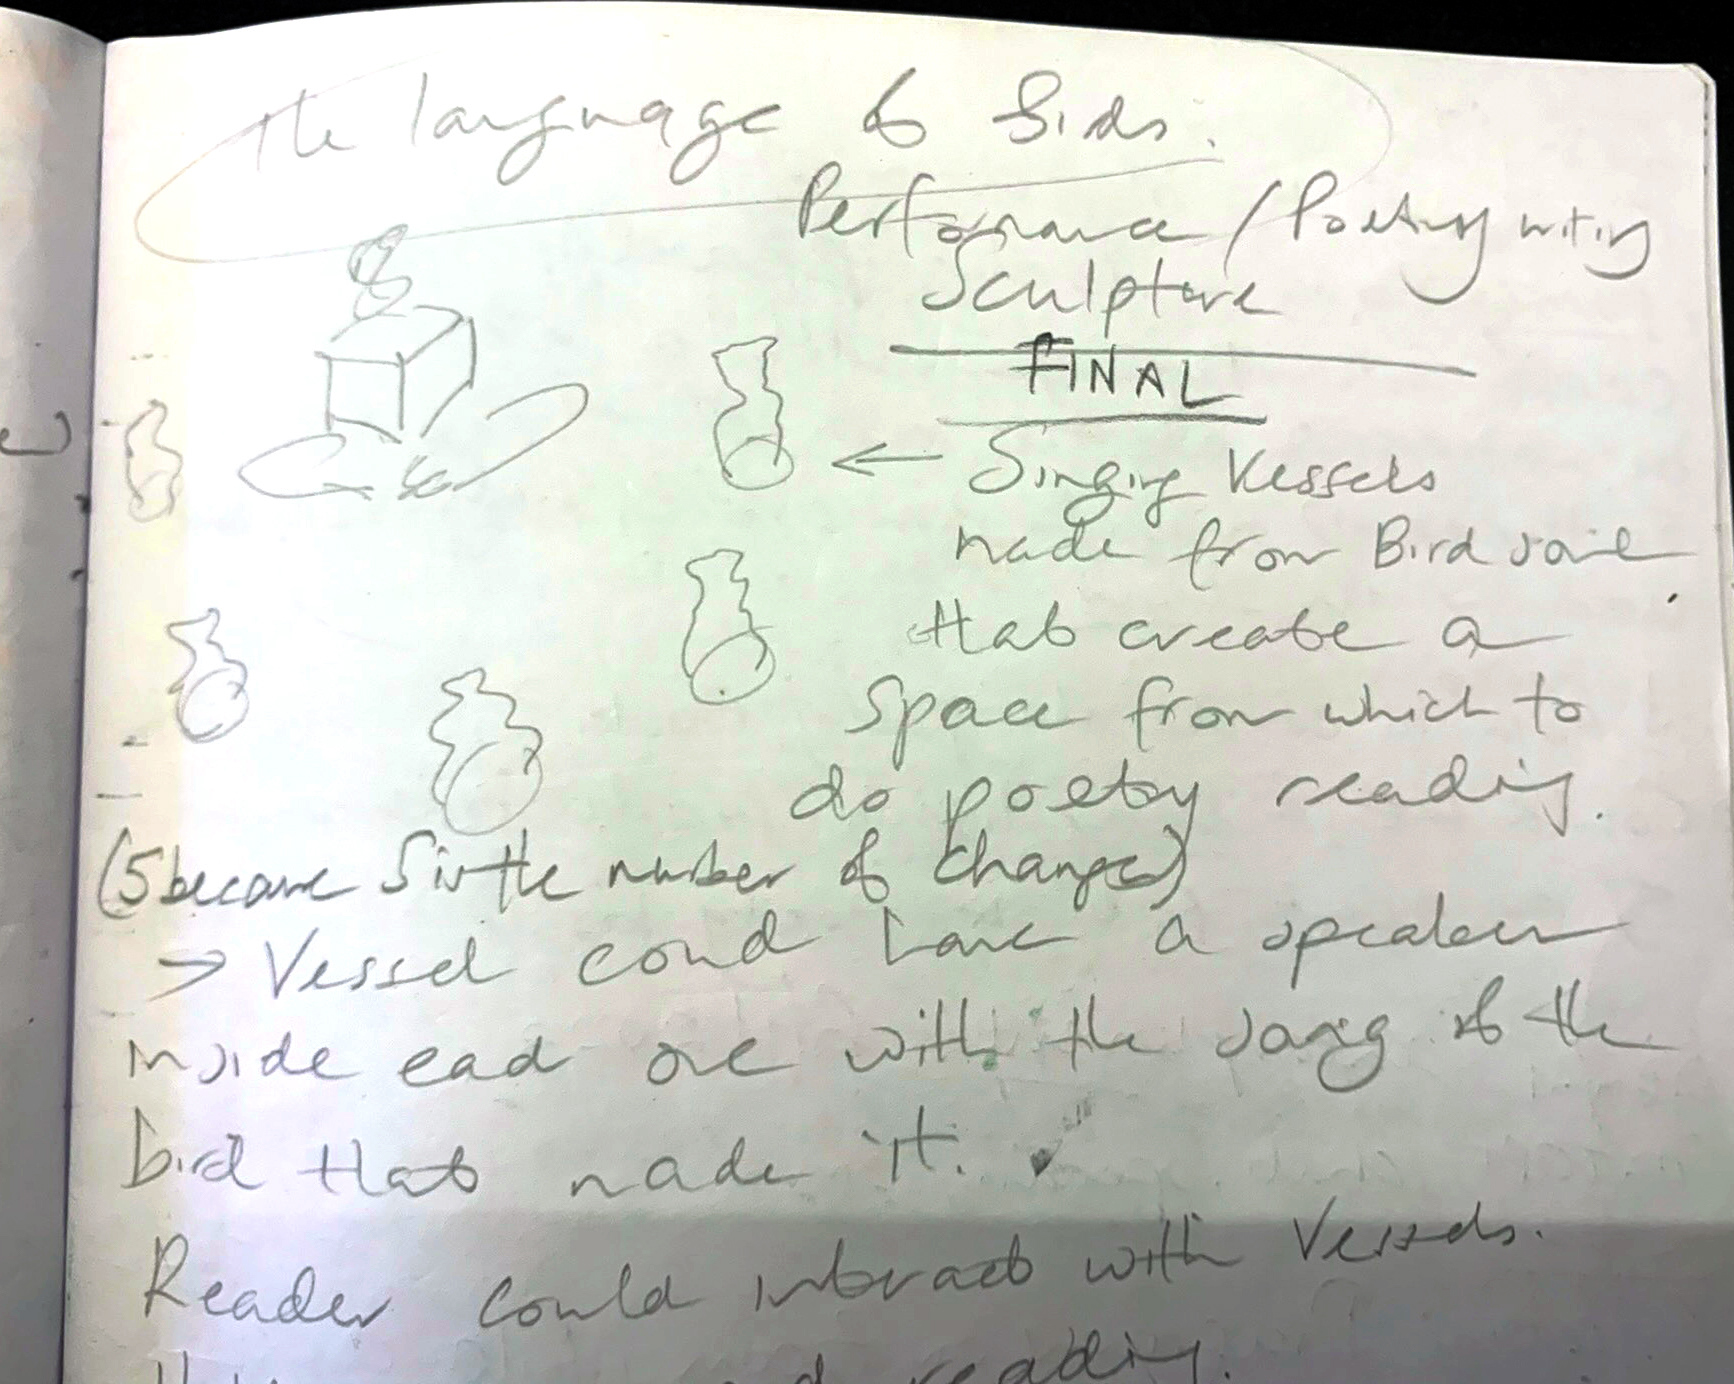 The language of Birds.
Performance / Poetry writing
Sculpture
FINAL
← Singing Vessels
made from Bird
that create a
space from which to
do poetry reading.
(5 because 5 is the number of change)
→ Vessel could have a speaker
inside each one with the song of the
bird that made it.
Reader could interact with Vessels.
reading.